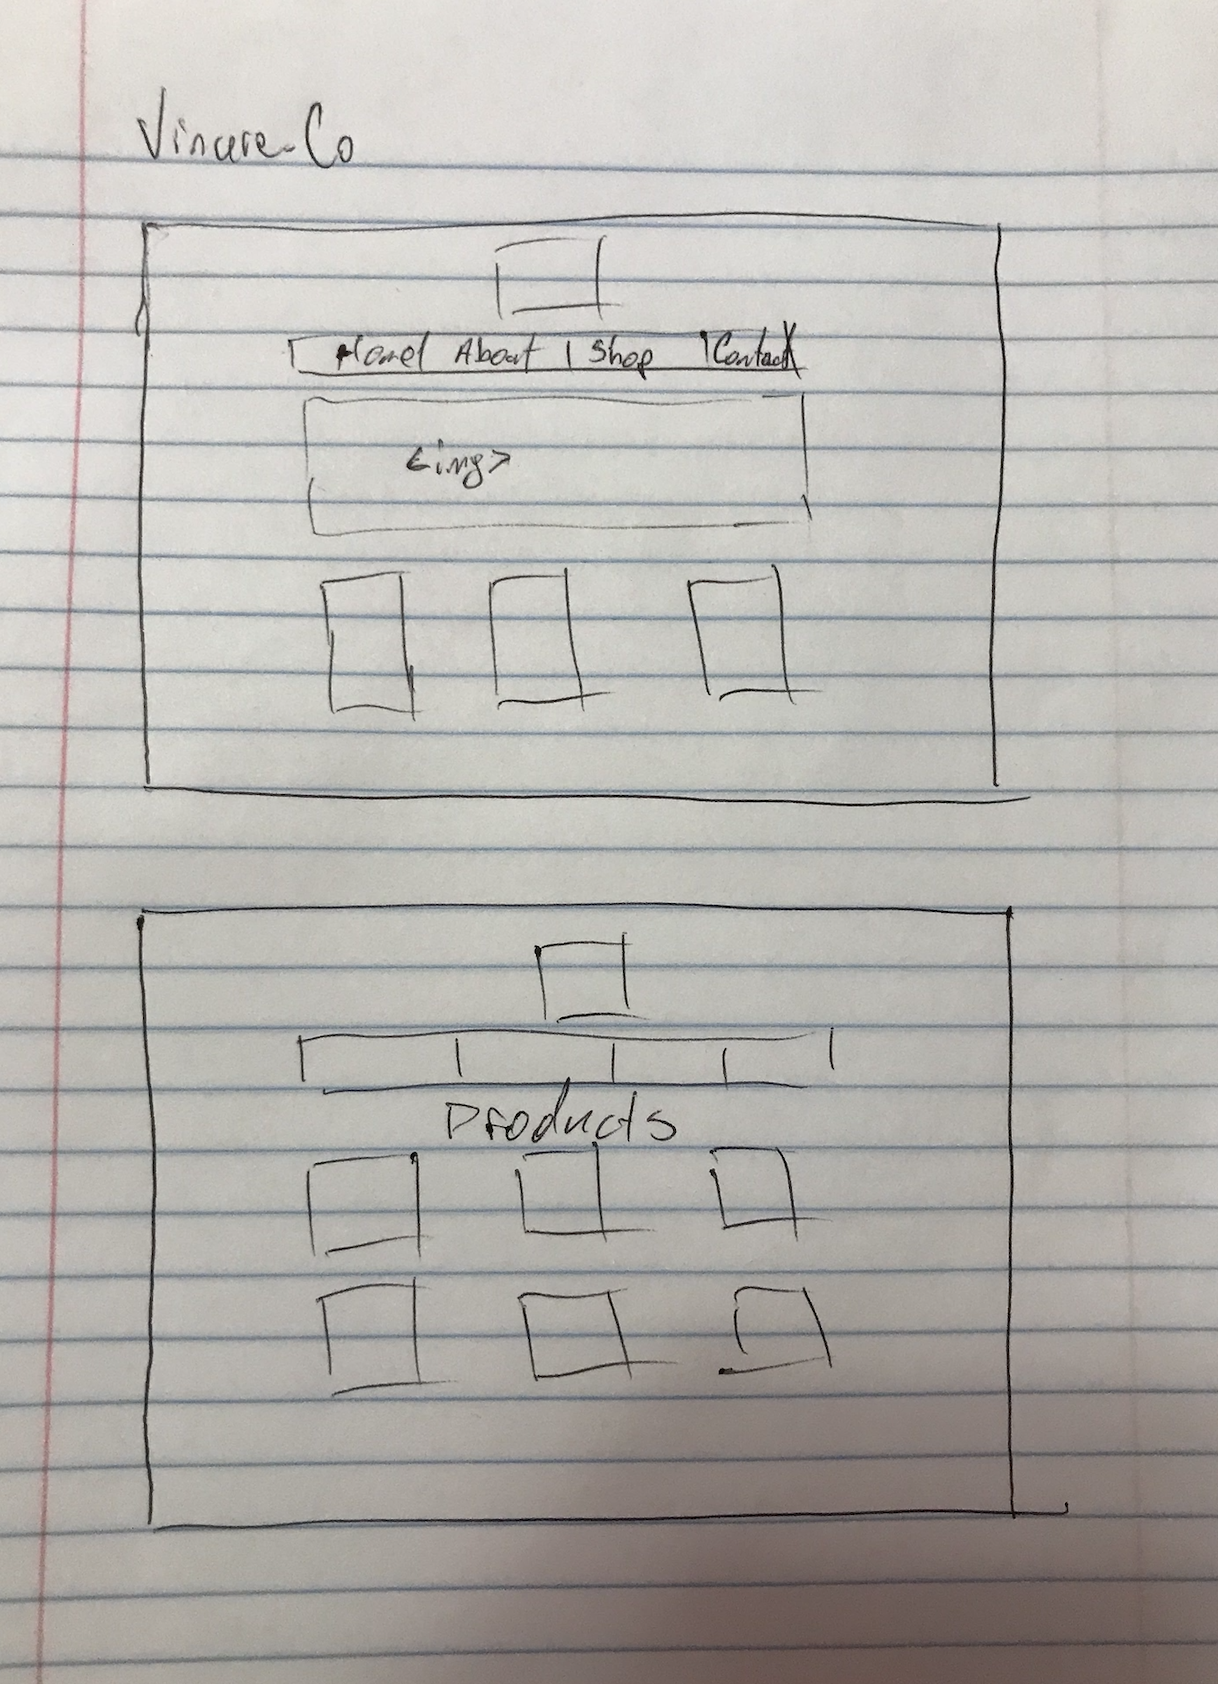 Vincere-Co
Home| About | Shop | Contact
<img>
Products